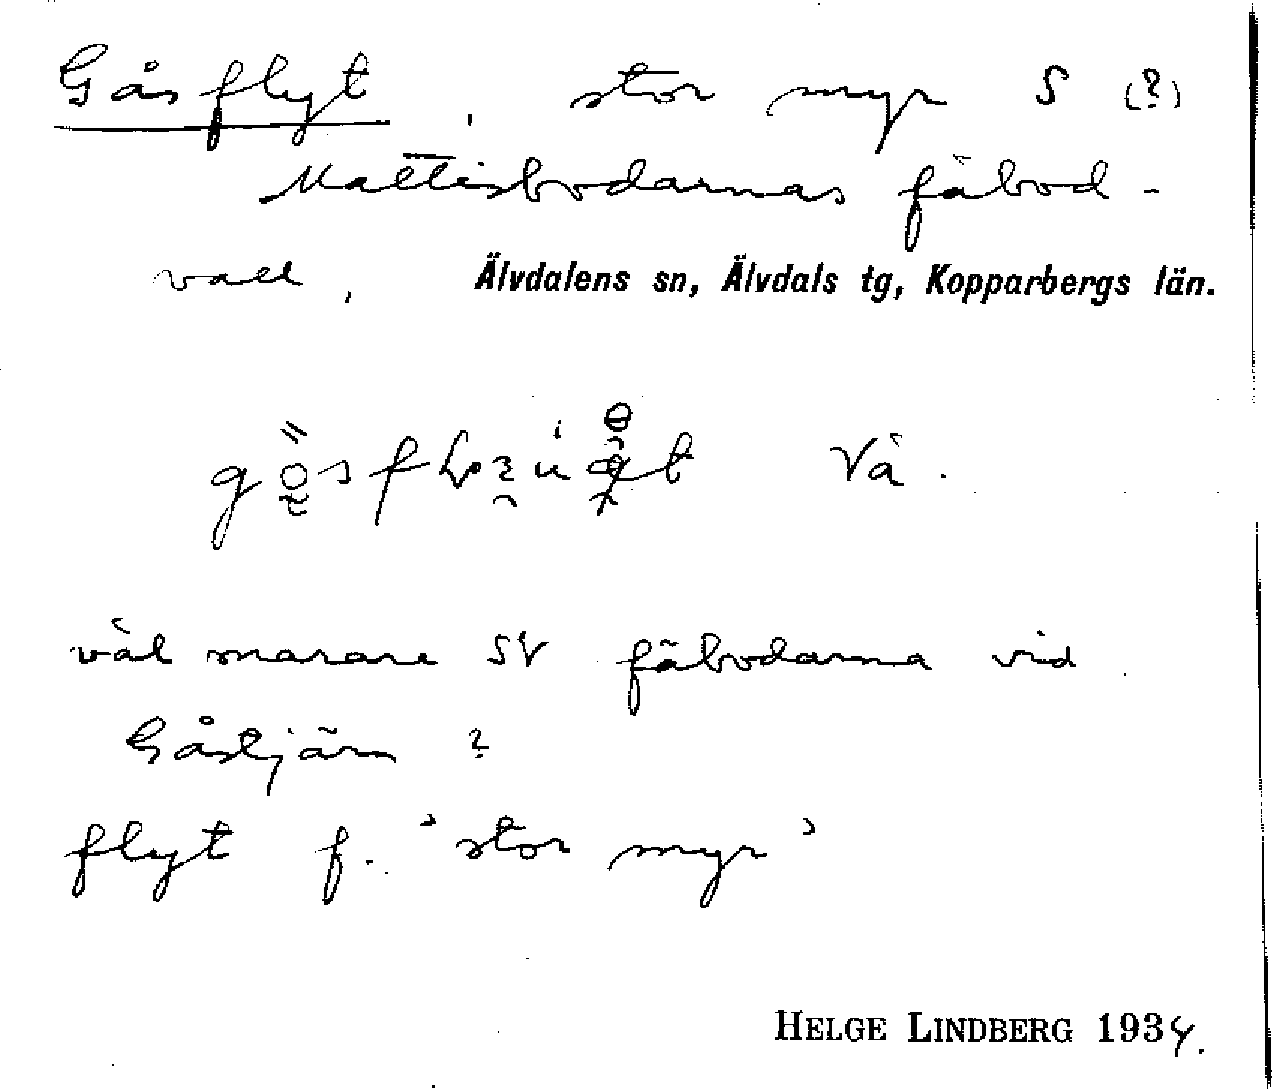 Gåsflyt, stor myr S (?)
Mattisbodarnas fäbod-
vall, Älvdalens sn, Älvdals tg, Kopparbergs län.
Vä.
väl snarare SV fäbodarna vid
Gåstjärn?
flyt f. 'stor myr'
HELGE LINDBERG 1934.